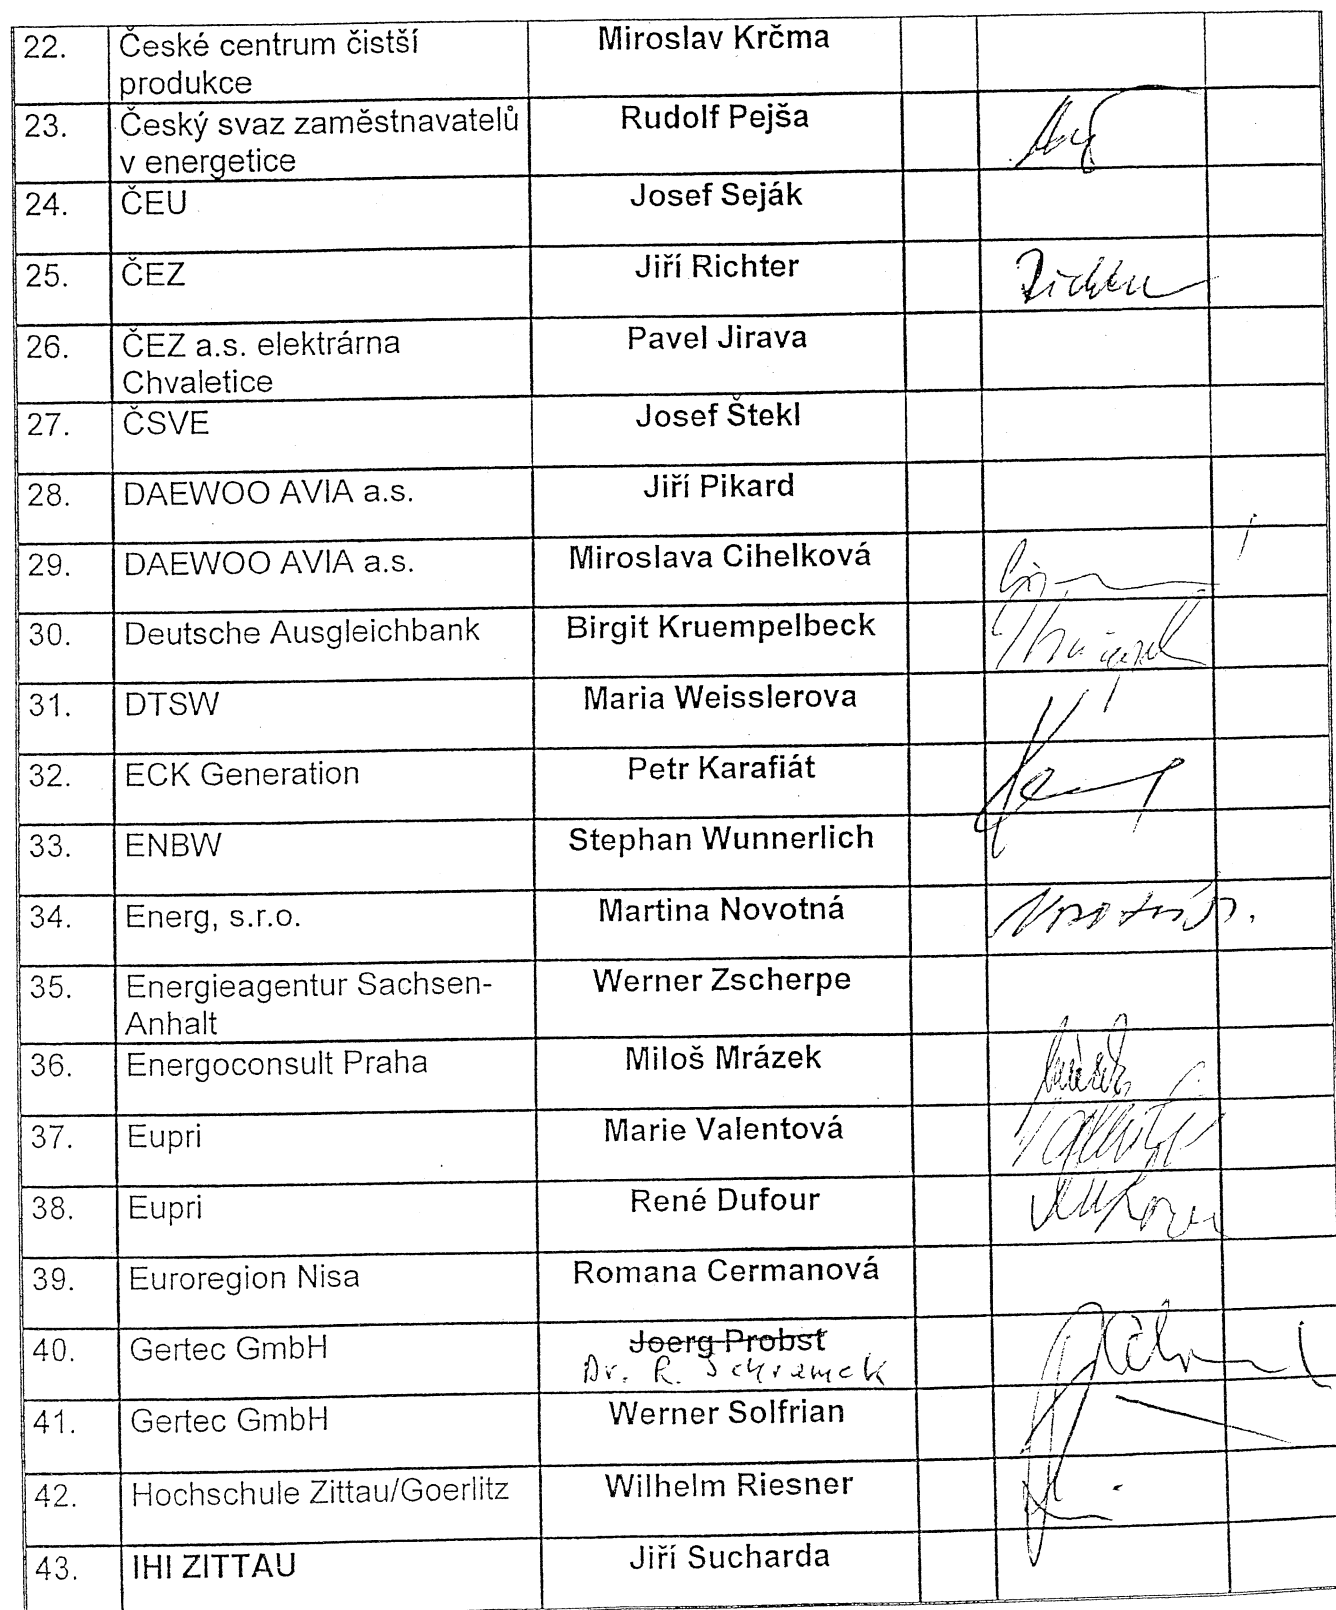 22. České centrum čistší Miroslav Krčma
produkce
23. Český svaz zaměstnavatelů Rudolf Pejša
v energetice
24. ČEU Josef Seják
25. ČEZ Jiří Richter Richter
26. ČEZ a.s. elektrárna Pavel Jirava
Chvaletice
27. ČSVE Josef Štekl
28. DAEWOO AVIA a.s. Jiří Pikard
29. DAEWOO AVIA a.s. Miroslava Cihelková
30. Deutsche Ausgleichbank Birgit Kruempelbeck
31. DTSW Maria Weisslerova
32. ECK Generation Petr Karafiát
33. ENBW Stephan Wunnerlich
34. Energ, s.r.o. Martina Novotná
35. Energieagentur Sachsen- Werner Zscherpe
Anhalt
36. Energoconsult Praha Miloš Mrázek
37. Eupri Marie Valentová
38. Eupri René Dufour
39. Euroregion Nisa Romana Cermanová
40. Gertec GmbH Joerg Probst
Dr. R.
41. Gertec GmbH Werner Solfrian
42. Hochschule Zittau/Goerlitz Wilhelm Riesner
43. IHI ZITTAU Jiří Sucharda